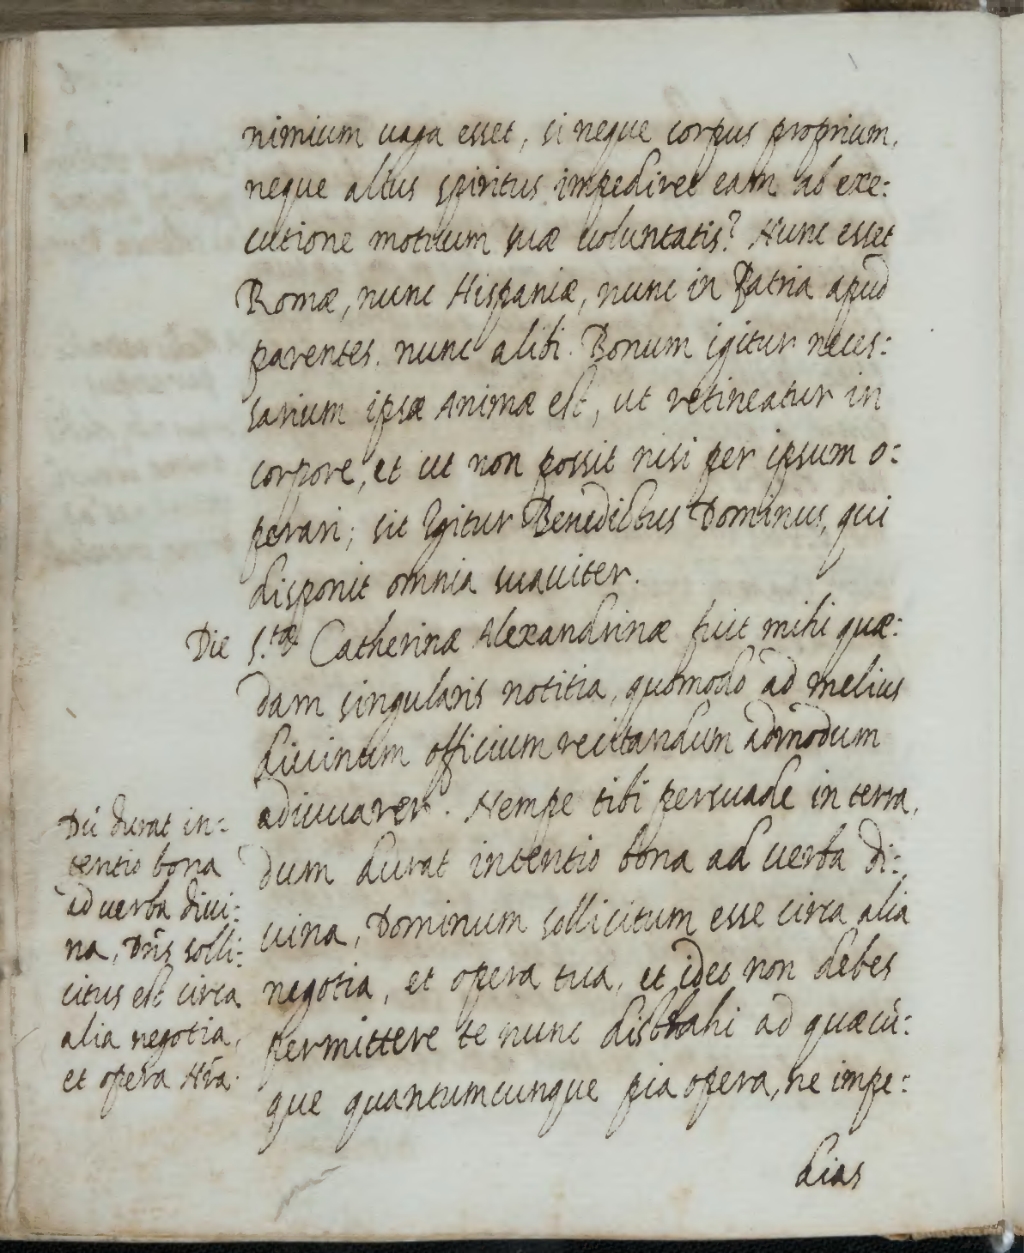 nimium uaga esset, si neque corpus proprium,
neque alius spiritus impediret eam ab exe:
cutione motuum suæ uoluntatis? Nunc esset
Romæ, nunc Hispaniæ, nunc in Patria apud
parentes. nunc alibi. Bonum igitur neces:
sarium ipsæ Animæ est, ut retineatur in
corpore, et ut non possit nisi per ipsum o:
perari; sit Igitur Benedictus Dominus, qui
disponit omnia suauiter.
Die S.tæ Catherinæ Alexandrinæ fuit mihi quæ:
dam singularis notitia, quomodo ad melius
diuinum officium recitandum admodum
adiuuarer. Nempe tibi persuade in terra,
dum durat intentio bona ad uerba di:
uina, Dominum sollicitum esse circa alia
negotia, et opera tua, et ideo non debes
permittere te nunc distrahi ad quæcũ:
que quantumcunque pia opera, ne impe:
dias
Dũ durat in:
tentio bona
ad uerba diui:
na, Dñs solli:
citus est circa
alia negotia,
et opera Nrã.